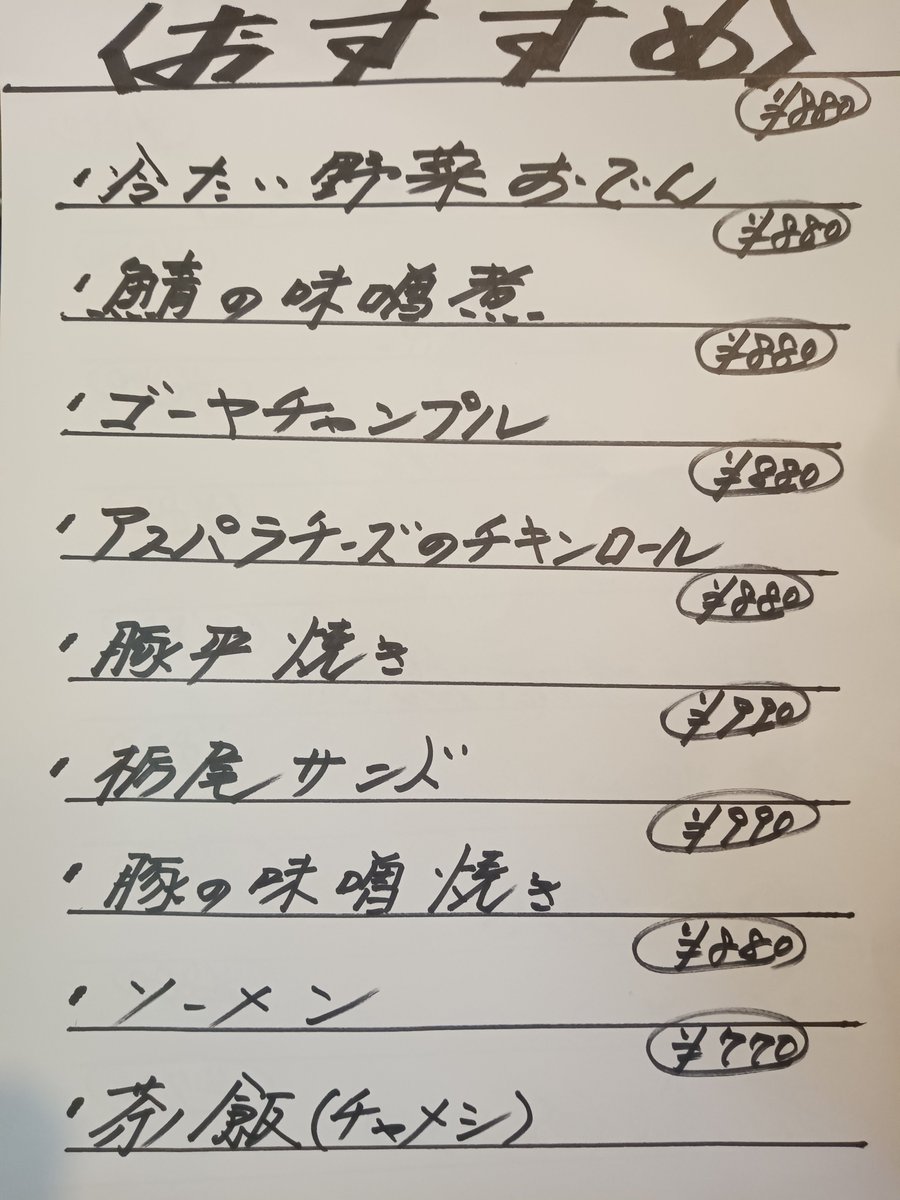 〈おすすめ〉
¥880
・冷たい野菜おでん
¥880
・鯖の味噌煮
¥880
・ゴーヤチャンプル
¥880
・アスパラチーズのチキンロール
¥880
・豚平焼き
¥990
・栃尾サンド
¥990
・豚の味噌焼き
¥880
・ソーメン
¥770
・茶飯(チャメシ)